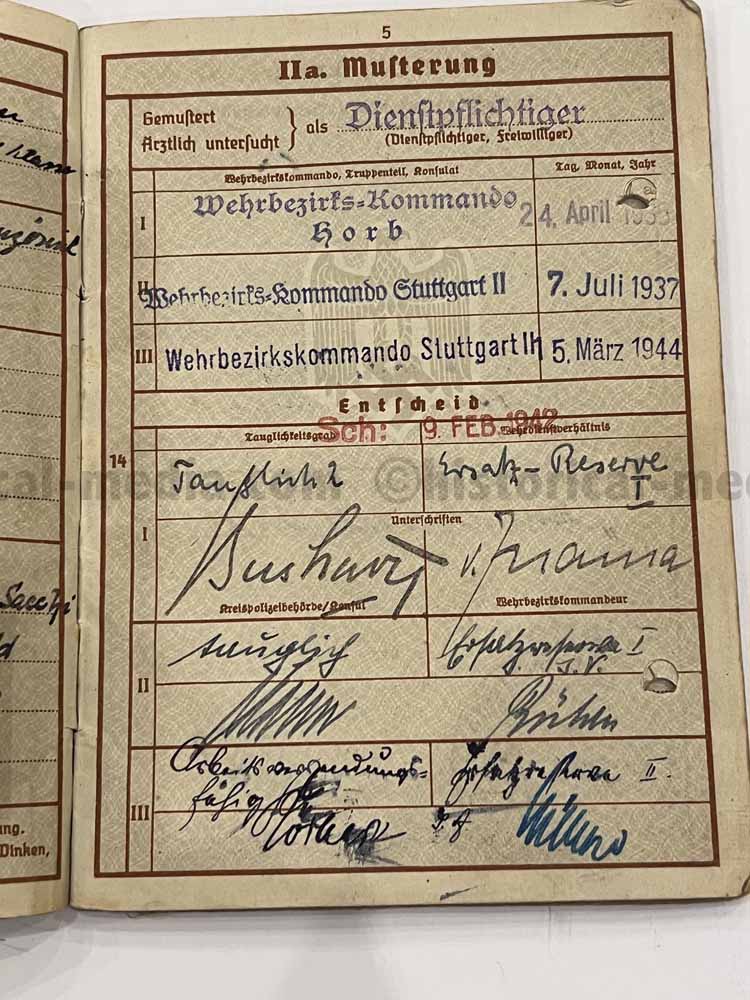 5
IIa. Musterung
Gemustert
Ärztlich untersucht } als Dienstpflichtiger
(Dienstpflichtiger, Freiwilliger)
Wehrbezirkskommando, Truppenteil, Konsulat
Tag, Monat, Jahr
I Wehrbezirks-Kommando 24. April
Horb
II Wehrbezirks-Kommando Stuttgart II 7. Juli 1937
III Wehrbezirkskommando Stuttgart II 5. März 1944
Entscheid
Sch: 9. FEB. 1942
Tauglichkeitsgrad Wehrdienstverhältnis
14
Tauglich 2 Ersatz-Reserve
I
I Unterschriften
Kreispolizeibehörde/Konsul Wehrbezirkskommandeur
tauglich Ersatzreserve I
II
Arbeitsverwendungs- Ersatzreserve II.
fähig
III
ng.
Dinken,